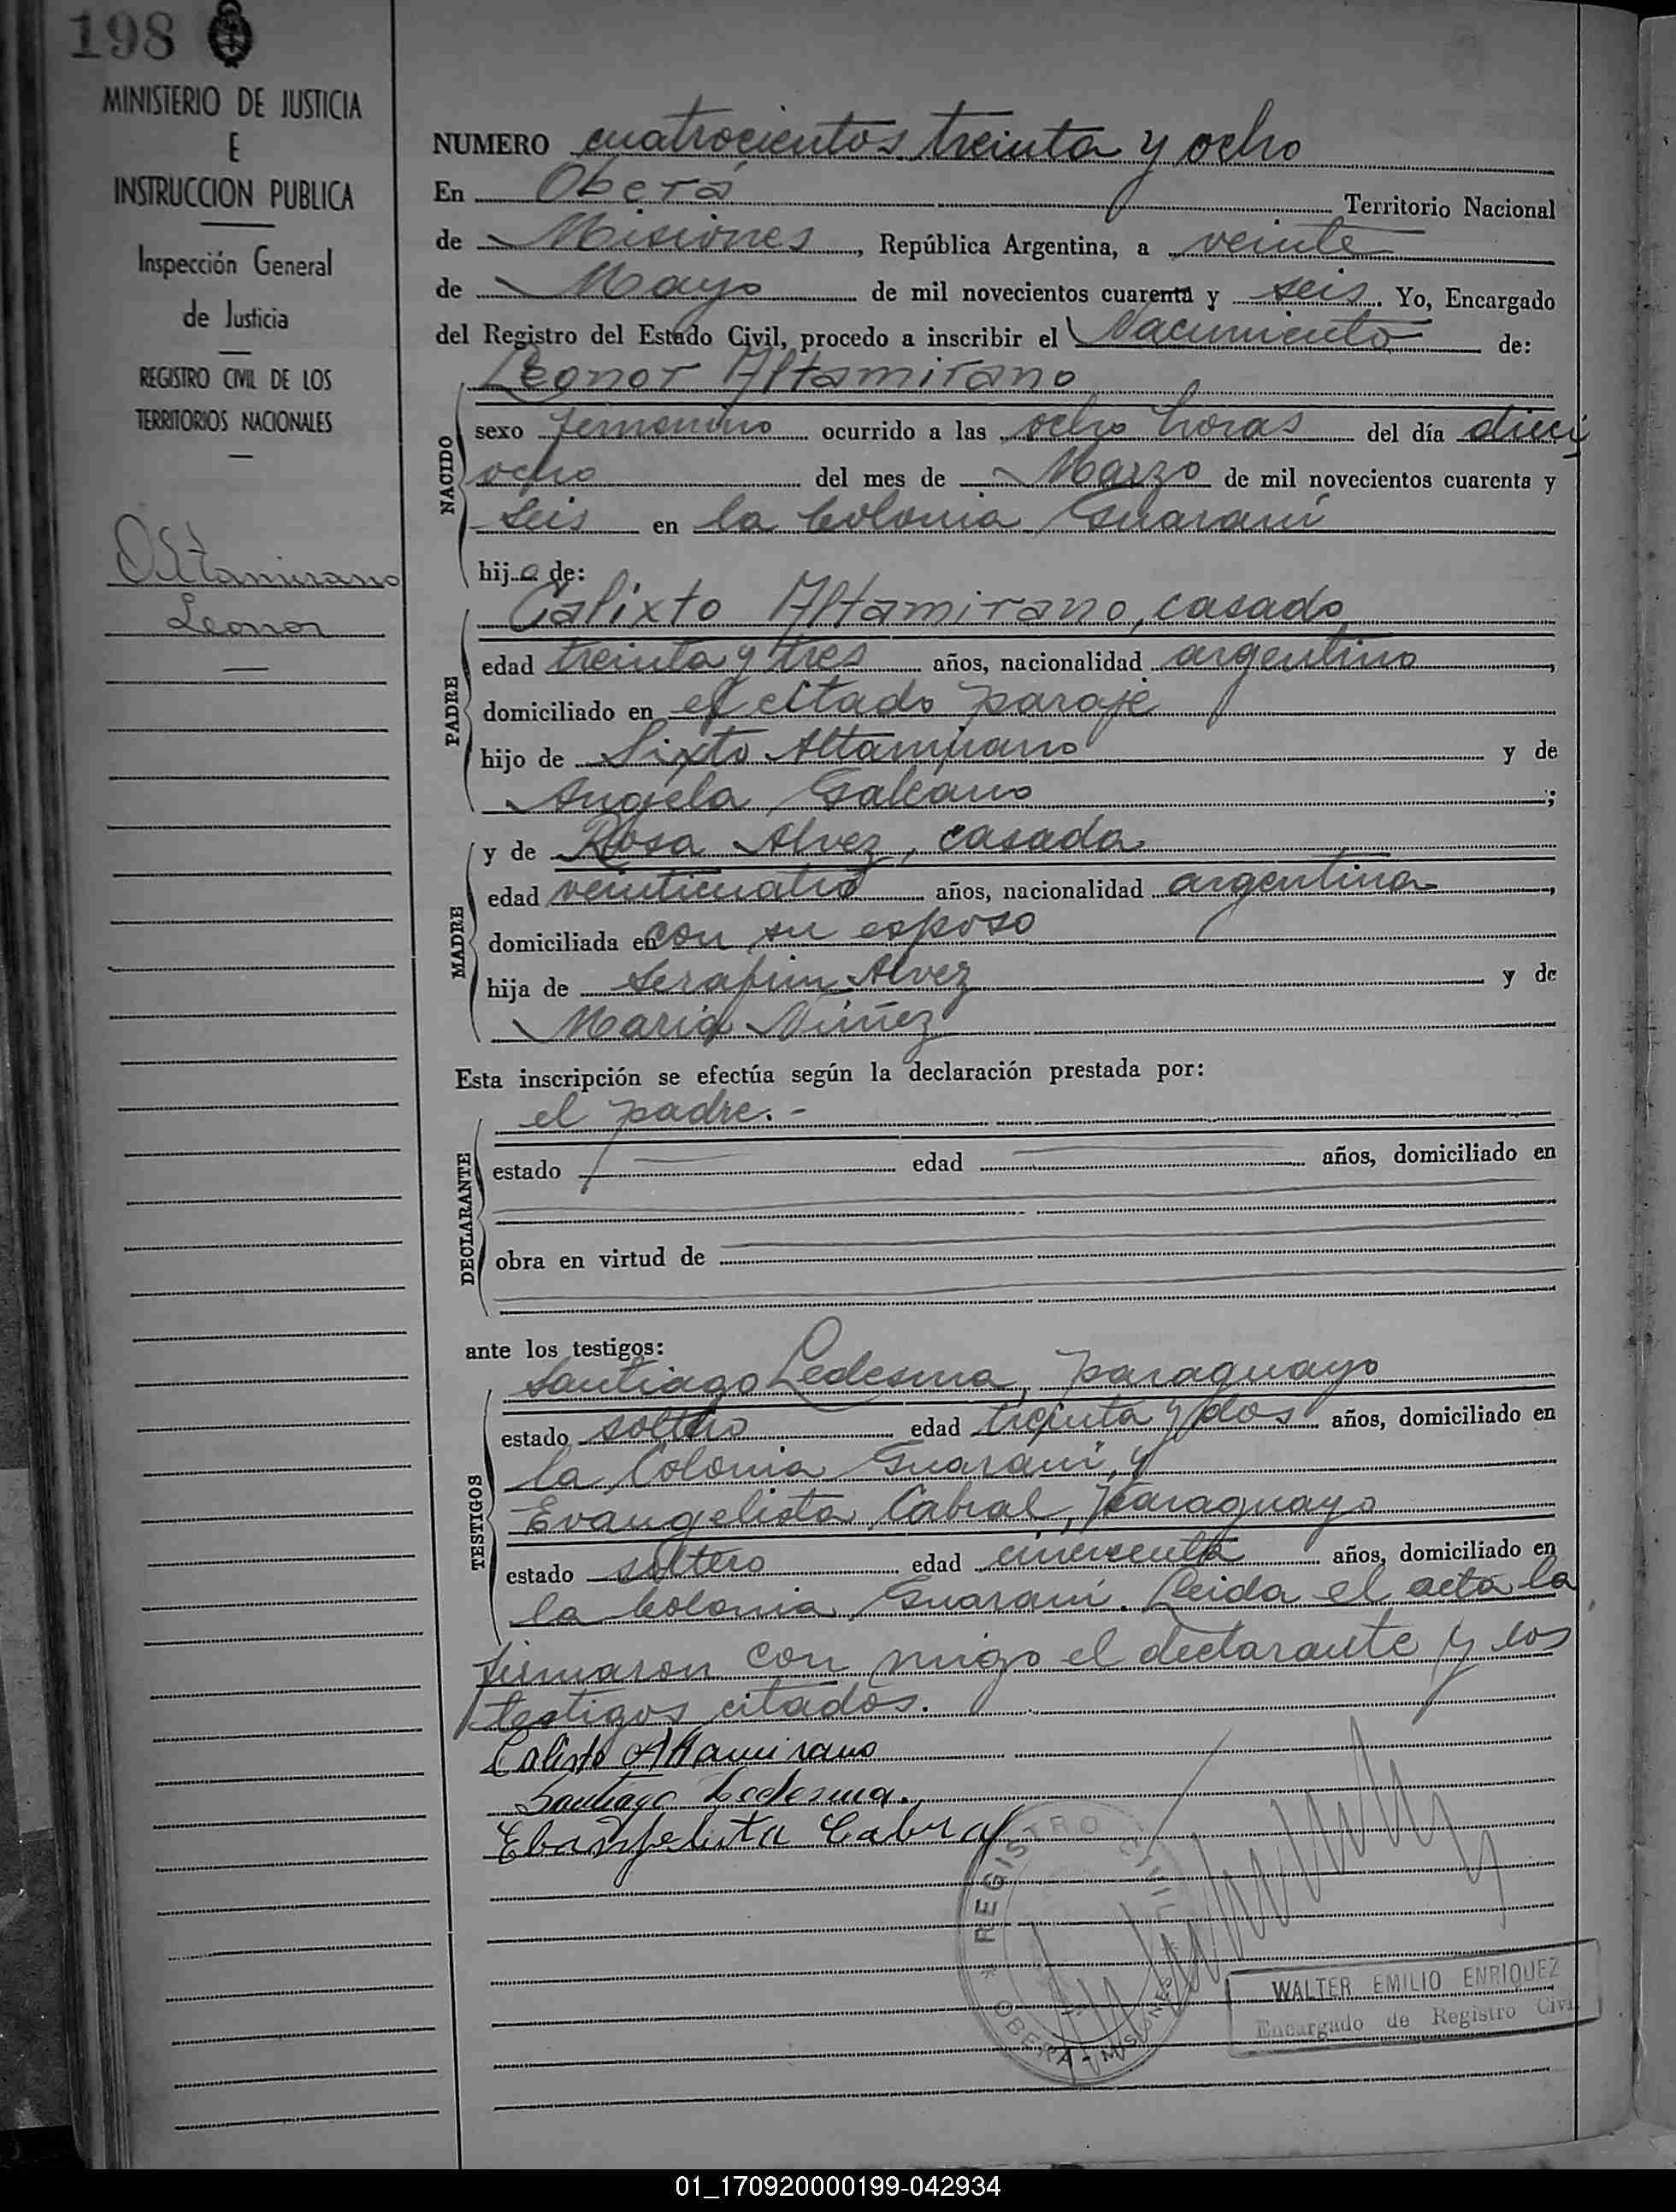 198
MINISTERIO DE JUSTICIA
E
INSTRUCCION PUBLICA
Inspección General
de Justicia
REGISTRO CIVIL DE LOS
TERRITORIOS NACIONALES
Altamirano
Leonor
NUMERO cuatrocientos treinta y ocho
En Oberá Territorio Nacional
de Misiones, República Argentina, a veinte
de Mayo de mil novecientos cuarenta y seis. Yo, Encargado
del Registro del Estado Civil, procedo a inscribir el Nacimiento de:
NACIDO
Leonor Altamirano
sexo femenino ocurrido a las ocho horas del día dieci
ocho del mes de Marzo de mil novecientos cuarenta y
seis en la Colonia Guaraní
hija de:
PADRE
Calixto Altamirano, casado
edad treinta y tres años, nacionalidad argentino,
domiciliado en el citado paraje
hijo de Sixto Altamirano y de
Angela Galeano;
MADRE
y de Rosa Alvez, casada
edad veinticuatro años, nacionalidad argentina,
domiciliada en con su esposo
hija de Serafin Alvez y de
Maria Núñez
Esta inscripción se efectúa según la declaración prestada por:
DECLARANTE
el padre.-
estado edad años, domiciliado en
obra en virtud de
ante los testigos:
TESTIGOS
Santiago Ledesma, paraguayo
estado soltero edad treinta y dos años, domiciliado en
la Colonia Guaraní, y
Evangelista Cabral, paraguayo
estado soltero edad cincuenta años, domiciliado en
la Colonia Guaraní. Leida el acta la
firmaron con migo el declarante y los
testigos citados.
Calisto Altamirano
Santiago Ledesma.
Ebangelista Cabral
REGISTRO CIVIL
OBERA - MISIONES
WALTER EMILIO ENRIQUEZ
Encargado de Registro Civil
01_170920000199-042934